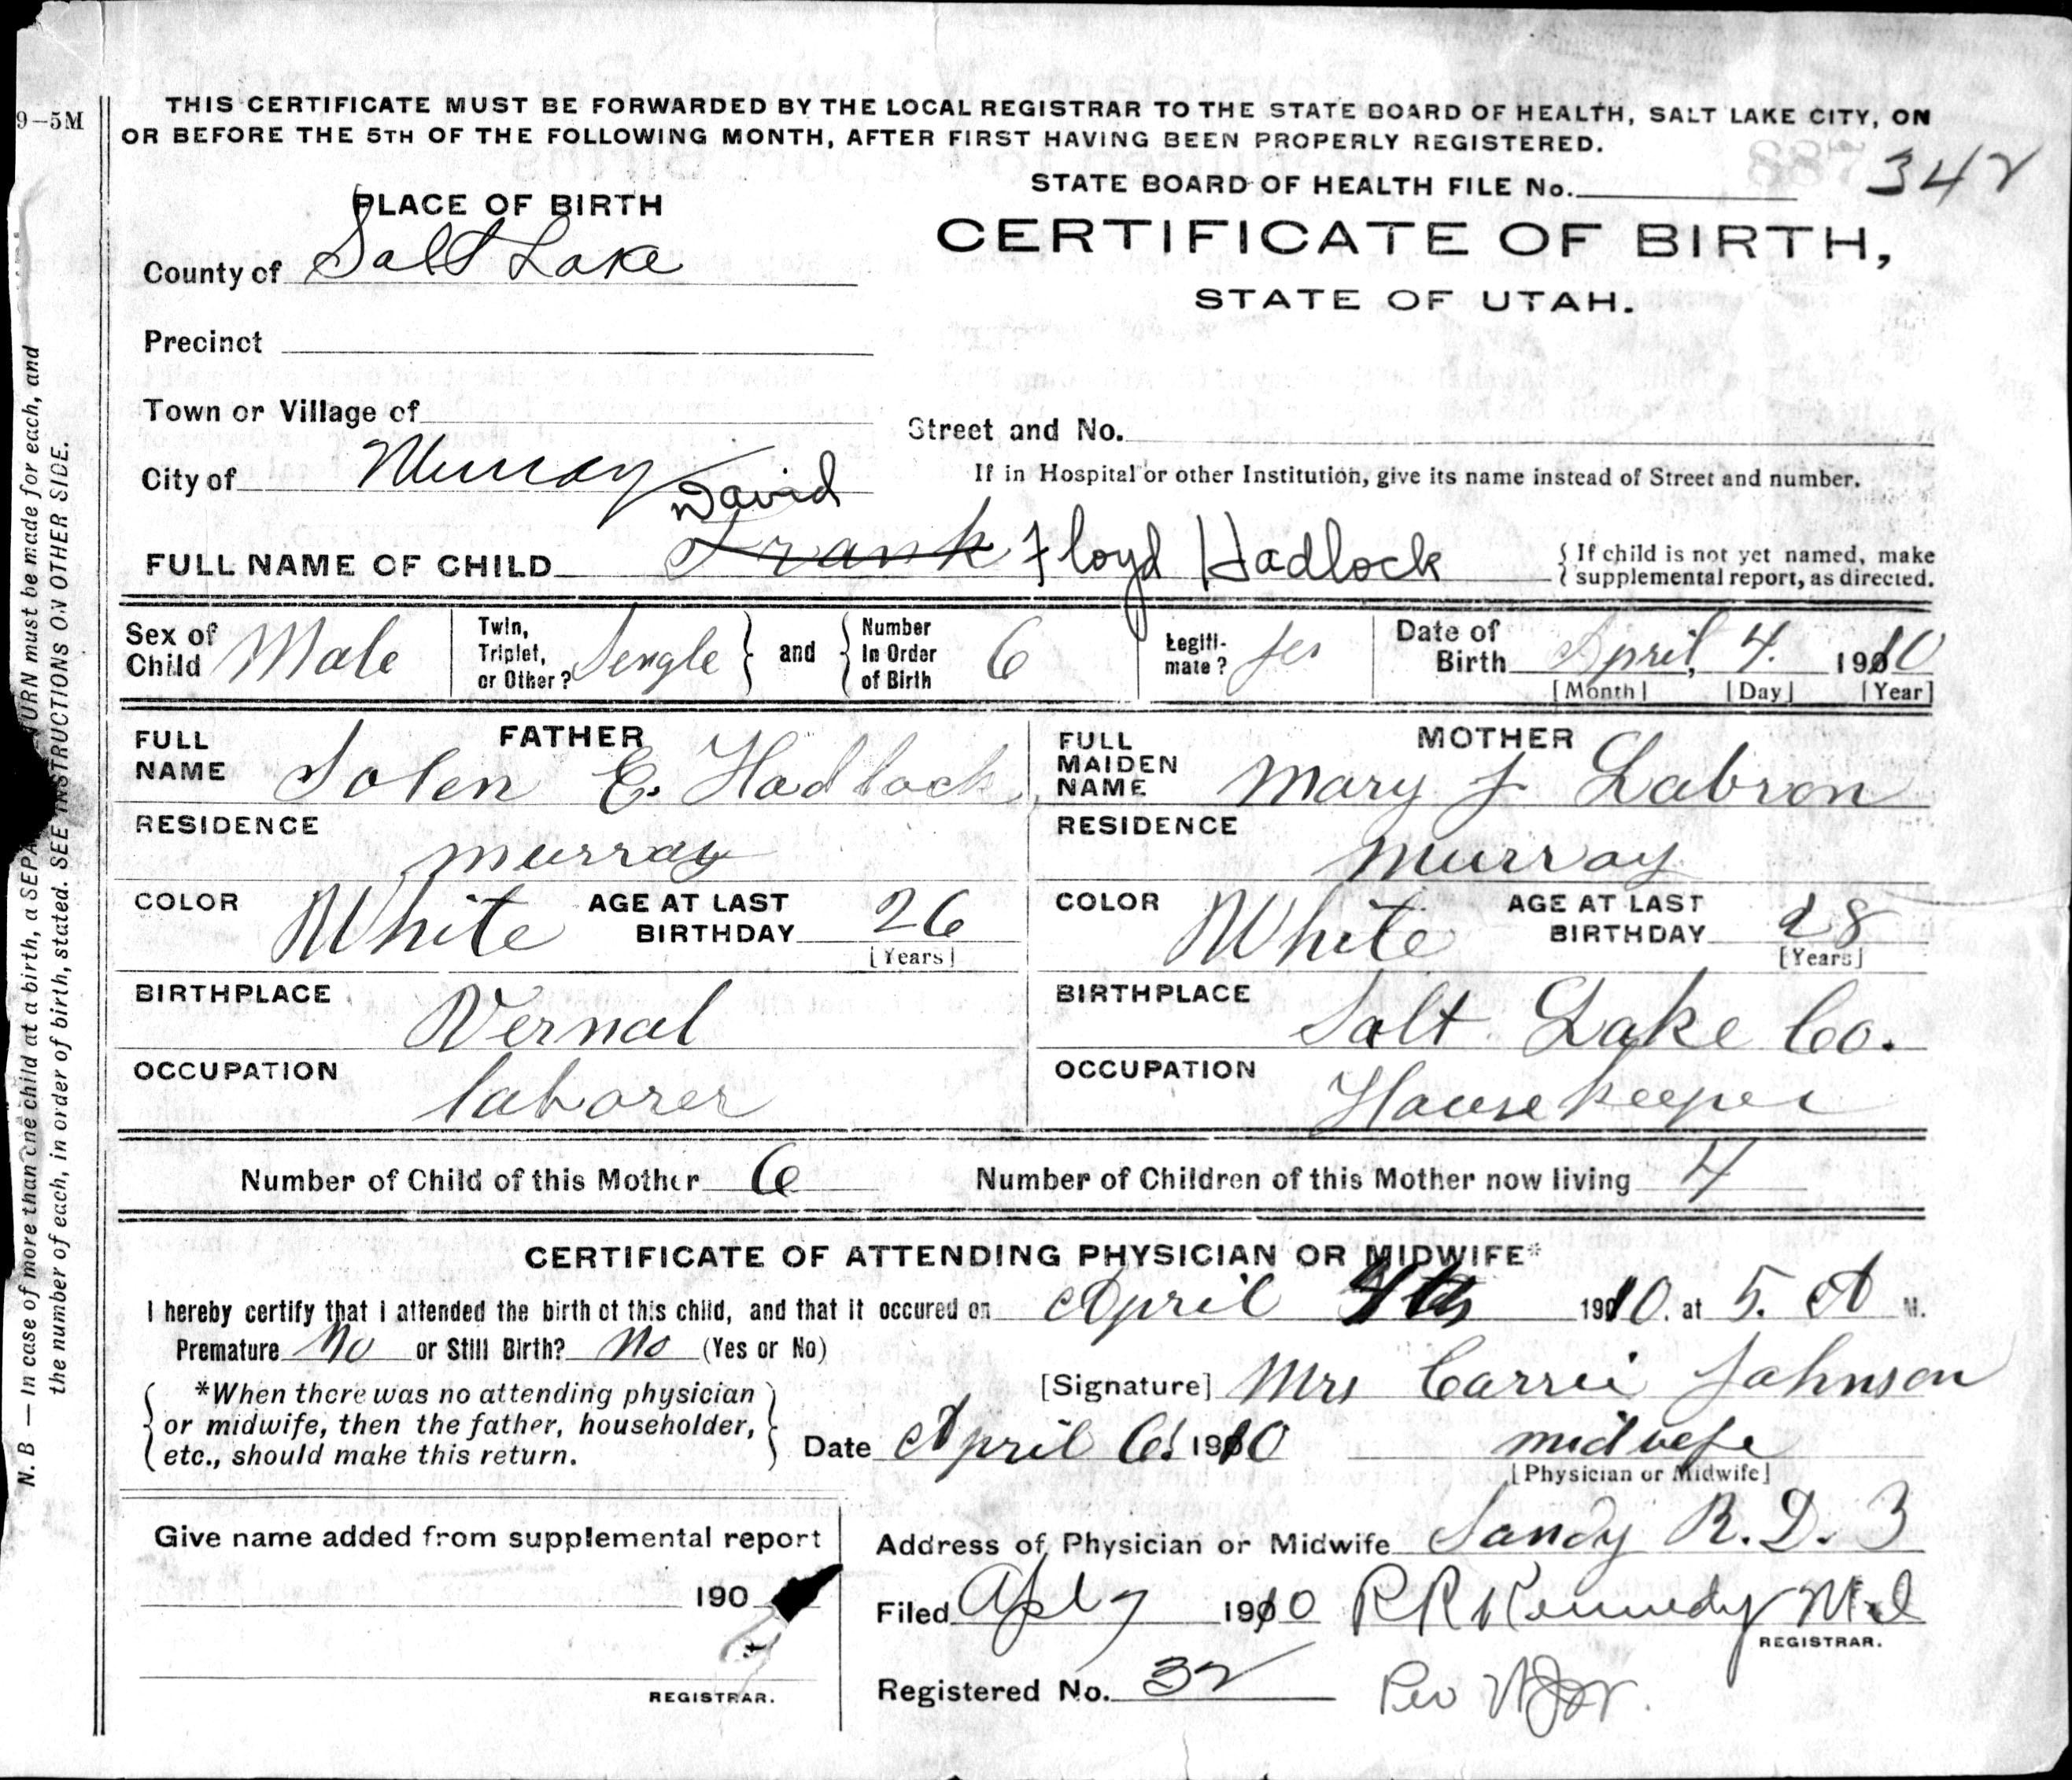 9-5M
THIS CERTIFICATE MUST BE FORWARDED BY THE LOCAL REGISTRAR TO THE STATE BOARD OF HEALTH, SALT LAKE CITY, ON
OR BEFORE THE 5TH OF THE FOLLOWING MONTH, AFTER FIRST HAVING BEEN PROPERLY REGISTERED.
STATE BOARD OF HEALTH FILE No. 342
PLACE OF BIRTH
CERTIFICATE OF BIRTH,
STATE OF UTAH.
County of Salt Lake
Precinct
Town or Village of
Street and No.
City of Murray
If in Hospital or other Institution, give its name instead of Street and number.
David
FULL NAME OF CHILD Frank Floyd Hadlock
{ If child is not yet named, make
{ supplemental report, as directed.
Sex of Child Male
Twin, Triplet, or Other? Sengle } and { Number In Order of Birth 6
Legiti-mate? yes
Date of Birth April, 4. 1910
[Month] [Day] [Year]
FATHER
FULL NAME Solen E. Hadlock
RESIDENCE
Murray
COLOR White AGE AT LAST BIRTHDAY 26
[Years]
BIRTHPLACE
Vernal
OCCUPATION
laborer
MOTHER
FULL MAIDEN NAME Mary J Labron
RESIDENCE
Murray
COLOR White AGE AT LAST BIRTHDAY 28
[Years]
BIRTHPLACE
Salt Lake Co.
OCCUPATION
Housekeeper
Number of Child of this Mother 6 Number of Children of this Mother now living 4
CERTIFICATE OF ATTENDING PHYSICIAN OR MIDWIFE*
I hereby certify that I attended the birth of this child, and that it occured on April 4th 1910. at 5. A M.
Premature No or Still Birth? No (Yes or No)
*When there was no attending physician
or midwife, then the father, householder,
etc., should make this return.
[Signature] Mrs Carrie Johnson
Date April 6. 1910 midwife
[Physician or Midwife]
Give name added from supplemental report
190
REGISTRAR.
Address of Physician or Midwife Sandy R. D. 3
Filed Apl 7 1910 RR Kennedy M.d
REGISTRAR.
Registered No. 32
N. B — In case of more than one child at a birth, a SEPA TURN must be made for each, and
the number of each, in order of birth, stated. SEE INSTRUCTIONS ON OTHER SIDE.